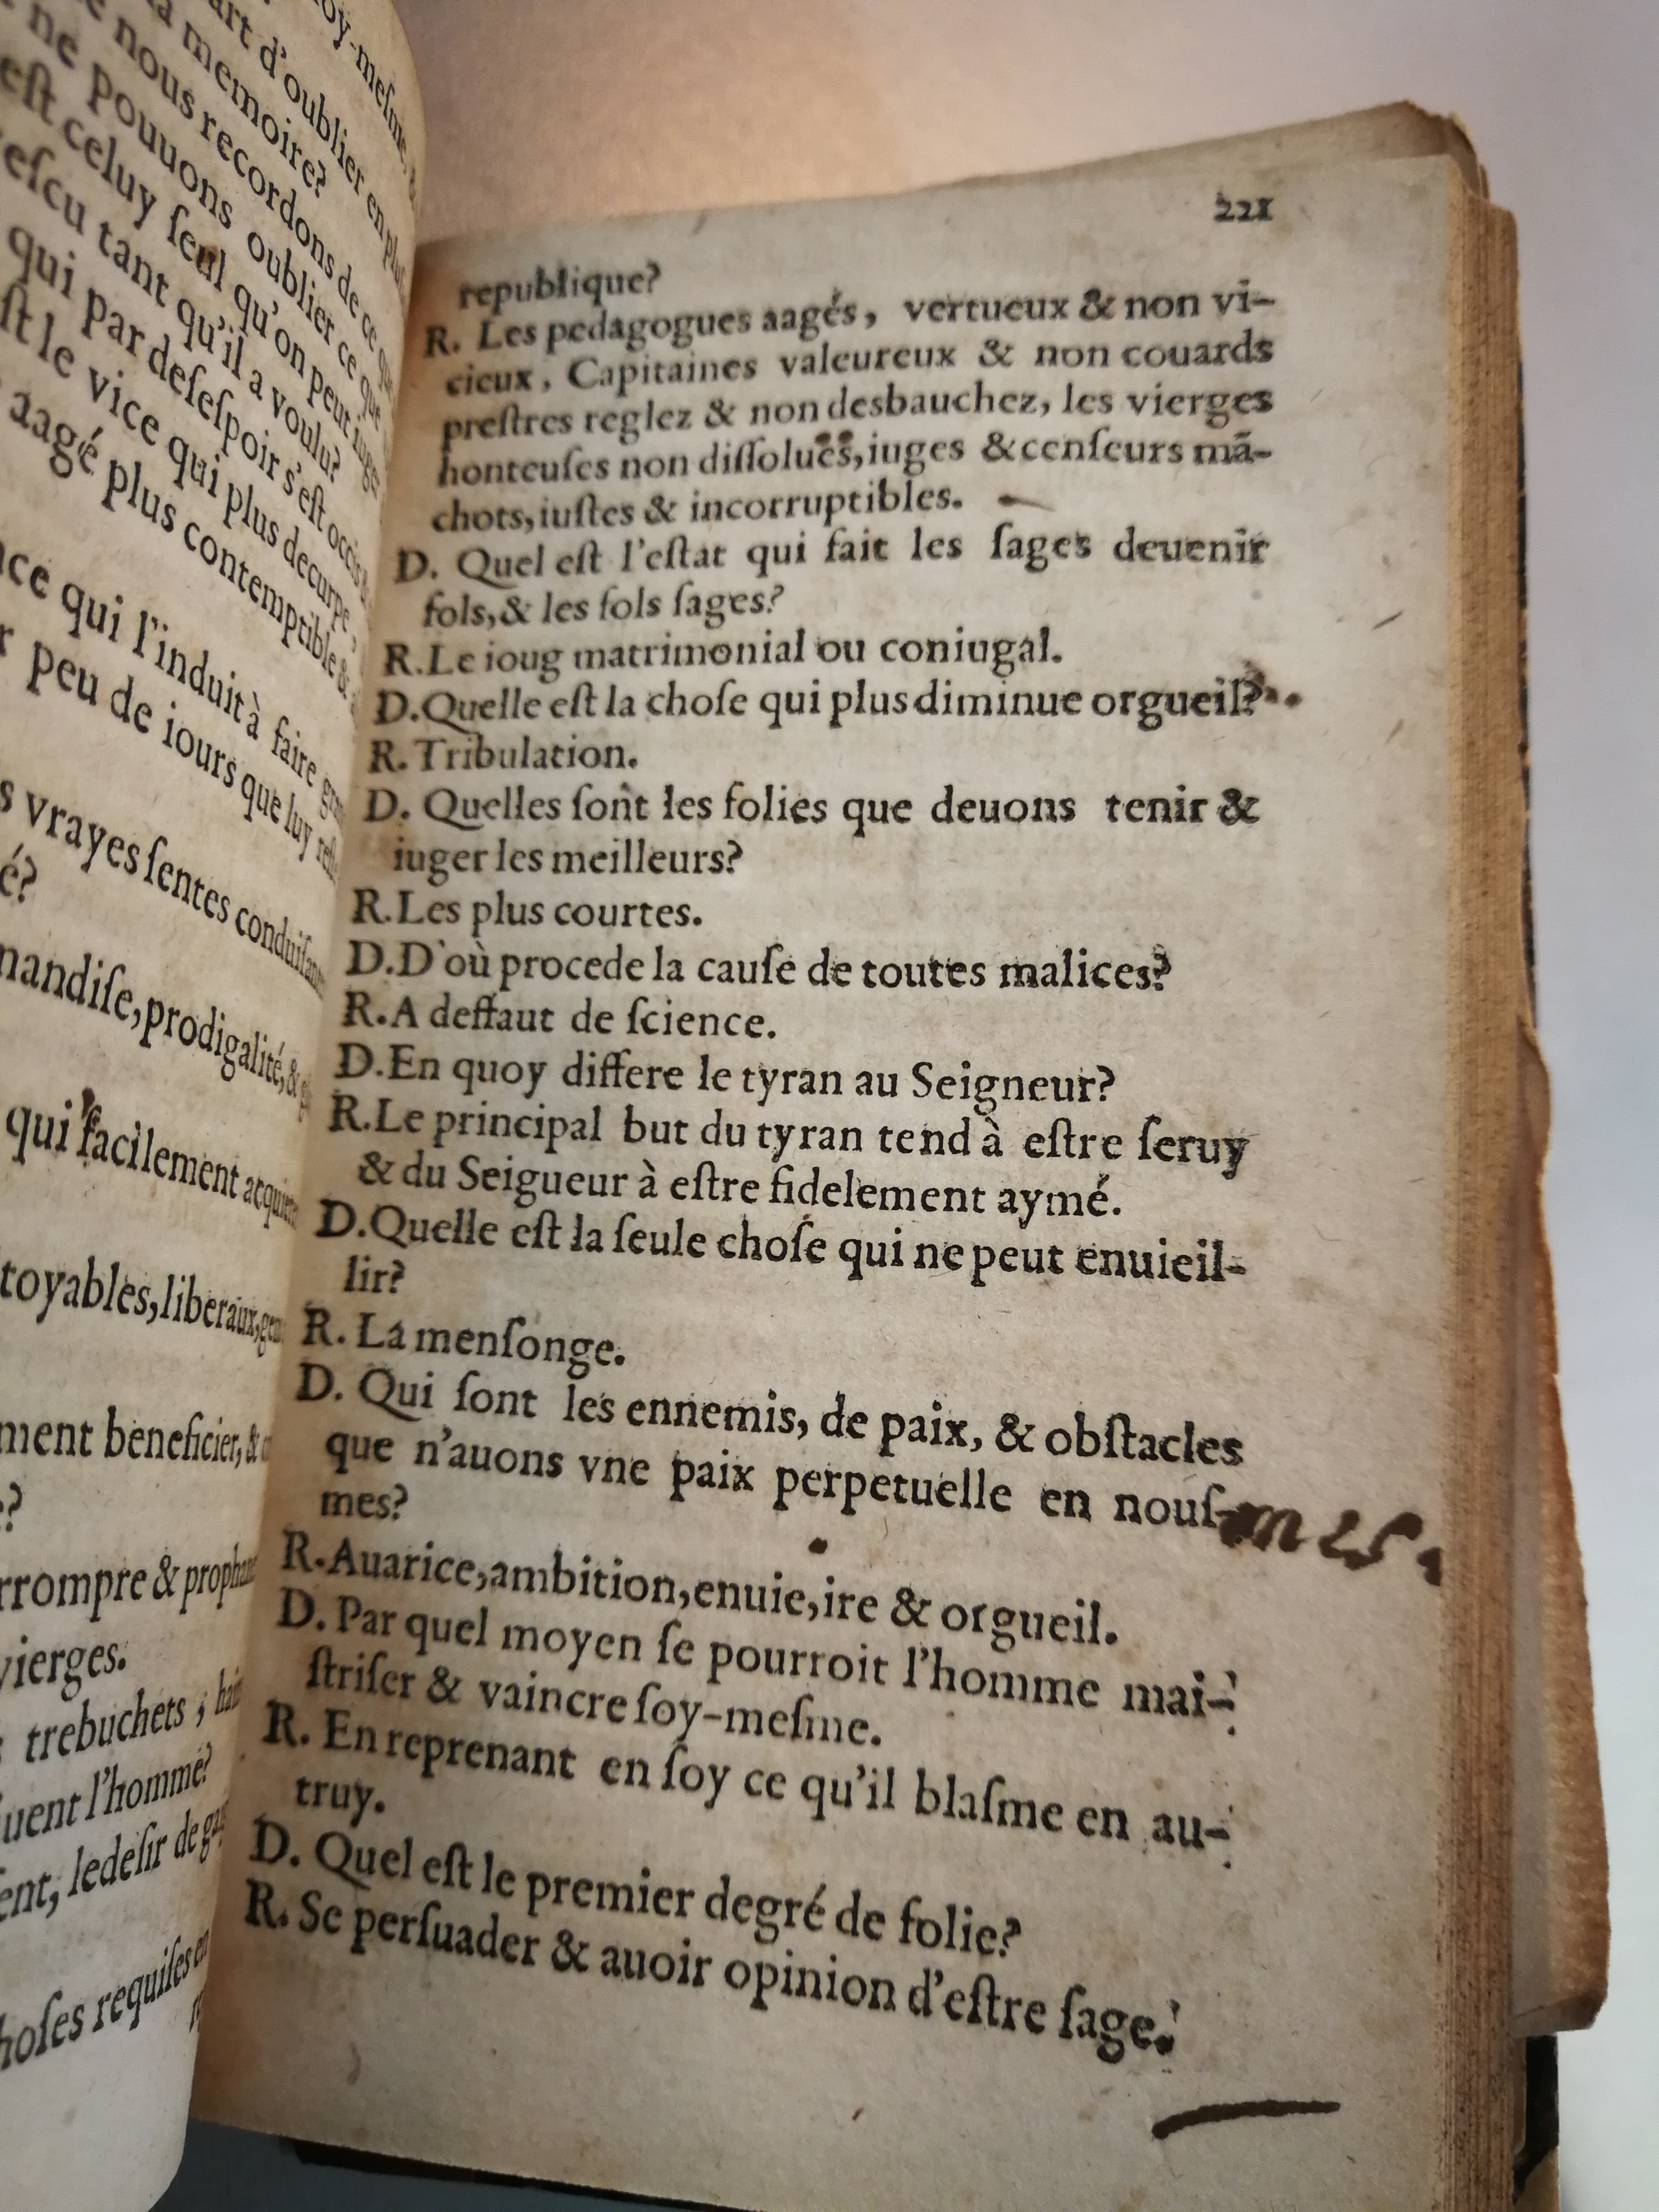 oy-meſme,
art d'oublier en plus
la memoire?
e nous recordons de ce que
ne pouuons oublier ce que
eſt celuy ſeul qu'on peut iuger
eſcu tant qu'il a voulu?
qui par deſeſpoir s'eſt occis
ſt le vice qui plus decurpe,
aagé plus contemptible &
ace qui l'induit à faire
r peu de iours que luy
s vrayes ſentes
é?
mandiſe, prodigalité, &
qui facilement
toyables, liberaux,
ment beneficier, &
?
rrompre &
vierges.
trebuchets,
uent l'homme?
ent, le deſir de
hoſes requiſes en
221
republique?
R. Les pedagogues aagés, vertueux & non vi-
cieux, Capitaines valeureux & non couards
preſtres reglez & non desbauchez, les vierges
honteuſes non diſſolues, iuges & cenſeurs mā-
chots, iuſtes & incorruptibles.
D. Quel eſt l'eſtat qui fait les ſages deuenir
fols, & les fols ſages?
R. Le ioug matrimonial ou coniugal.
D. Quelle eſt la choſe qui plus diminue orgueil?
R. Tribulation.
D. Quelles ſont les folies que deuons tenir &
iuger les meilleurs?
R. Les plus courtes.
D. D'où procede la cauſe de toutes malices?
R. A deffaut de ſcience.
D. En quoy differe le tyran au Seigneur?
R. Le principal but du tyran tend à eſtre ſeruy
& du Seigueur à eſtre fidelement aymé.
D. Quelle eſt la ſeule choſe qui ne peut enuieil-
lir?
R. La menſonge.
D. Qui ſont les ennemis, de paix, & obſtacles
que n'auons vne paix perpetuelle en nouſ- mes.
mes?
R. Auarice, ambition, enuie, ire & orgueil.
D. Par quel moyen ſe pourroit l'homme mai-
ſtriſer & vaincre ſoy-meſme.
R. En reprenant en ſoy ce qu'il blaſme en au-
truy.
D. Quel eſt le premier degré de folie?
R. Se perſuader & auoir opinion d'eſtre ſage.